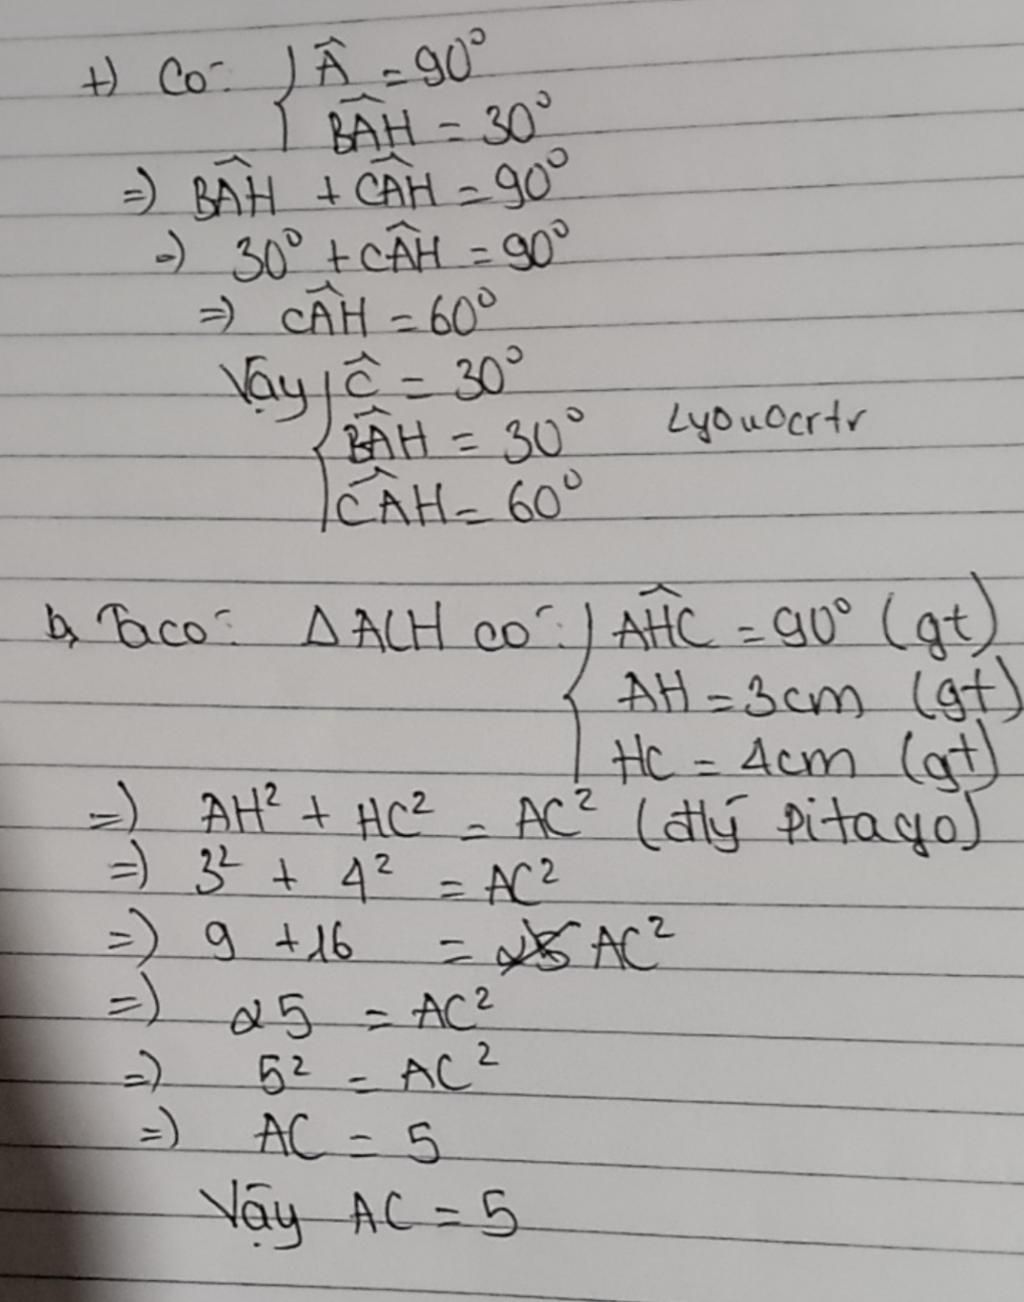 +) Có: { Â = 90°
BÂH = 30°
=) BÂH + CÂH = 90°
=) 30° + CÂH = 90°
=) CÂH = 60°
Vậy { Ĉ = 30°
BÂH = 30° Lyouocrtr
CÂH = 60°
b, Ta có: ΔACH có: { AĤC = 90° (gt)
AH = 3cm (gt)
HC = 4cm (gt)
=) AH² + HC² = AC² (đlý pitago)
=) 3² + 4² = AC²
=) 9 + 16 = AC²
=) 25 = AC²
=) 5² = AC²
=) AC = 5
Vậy AC = 5